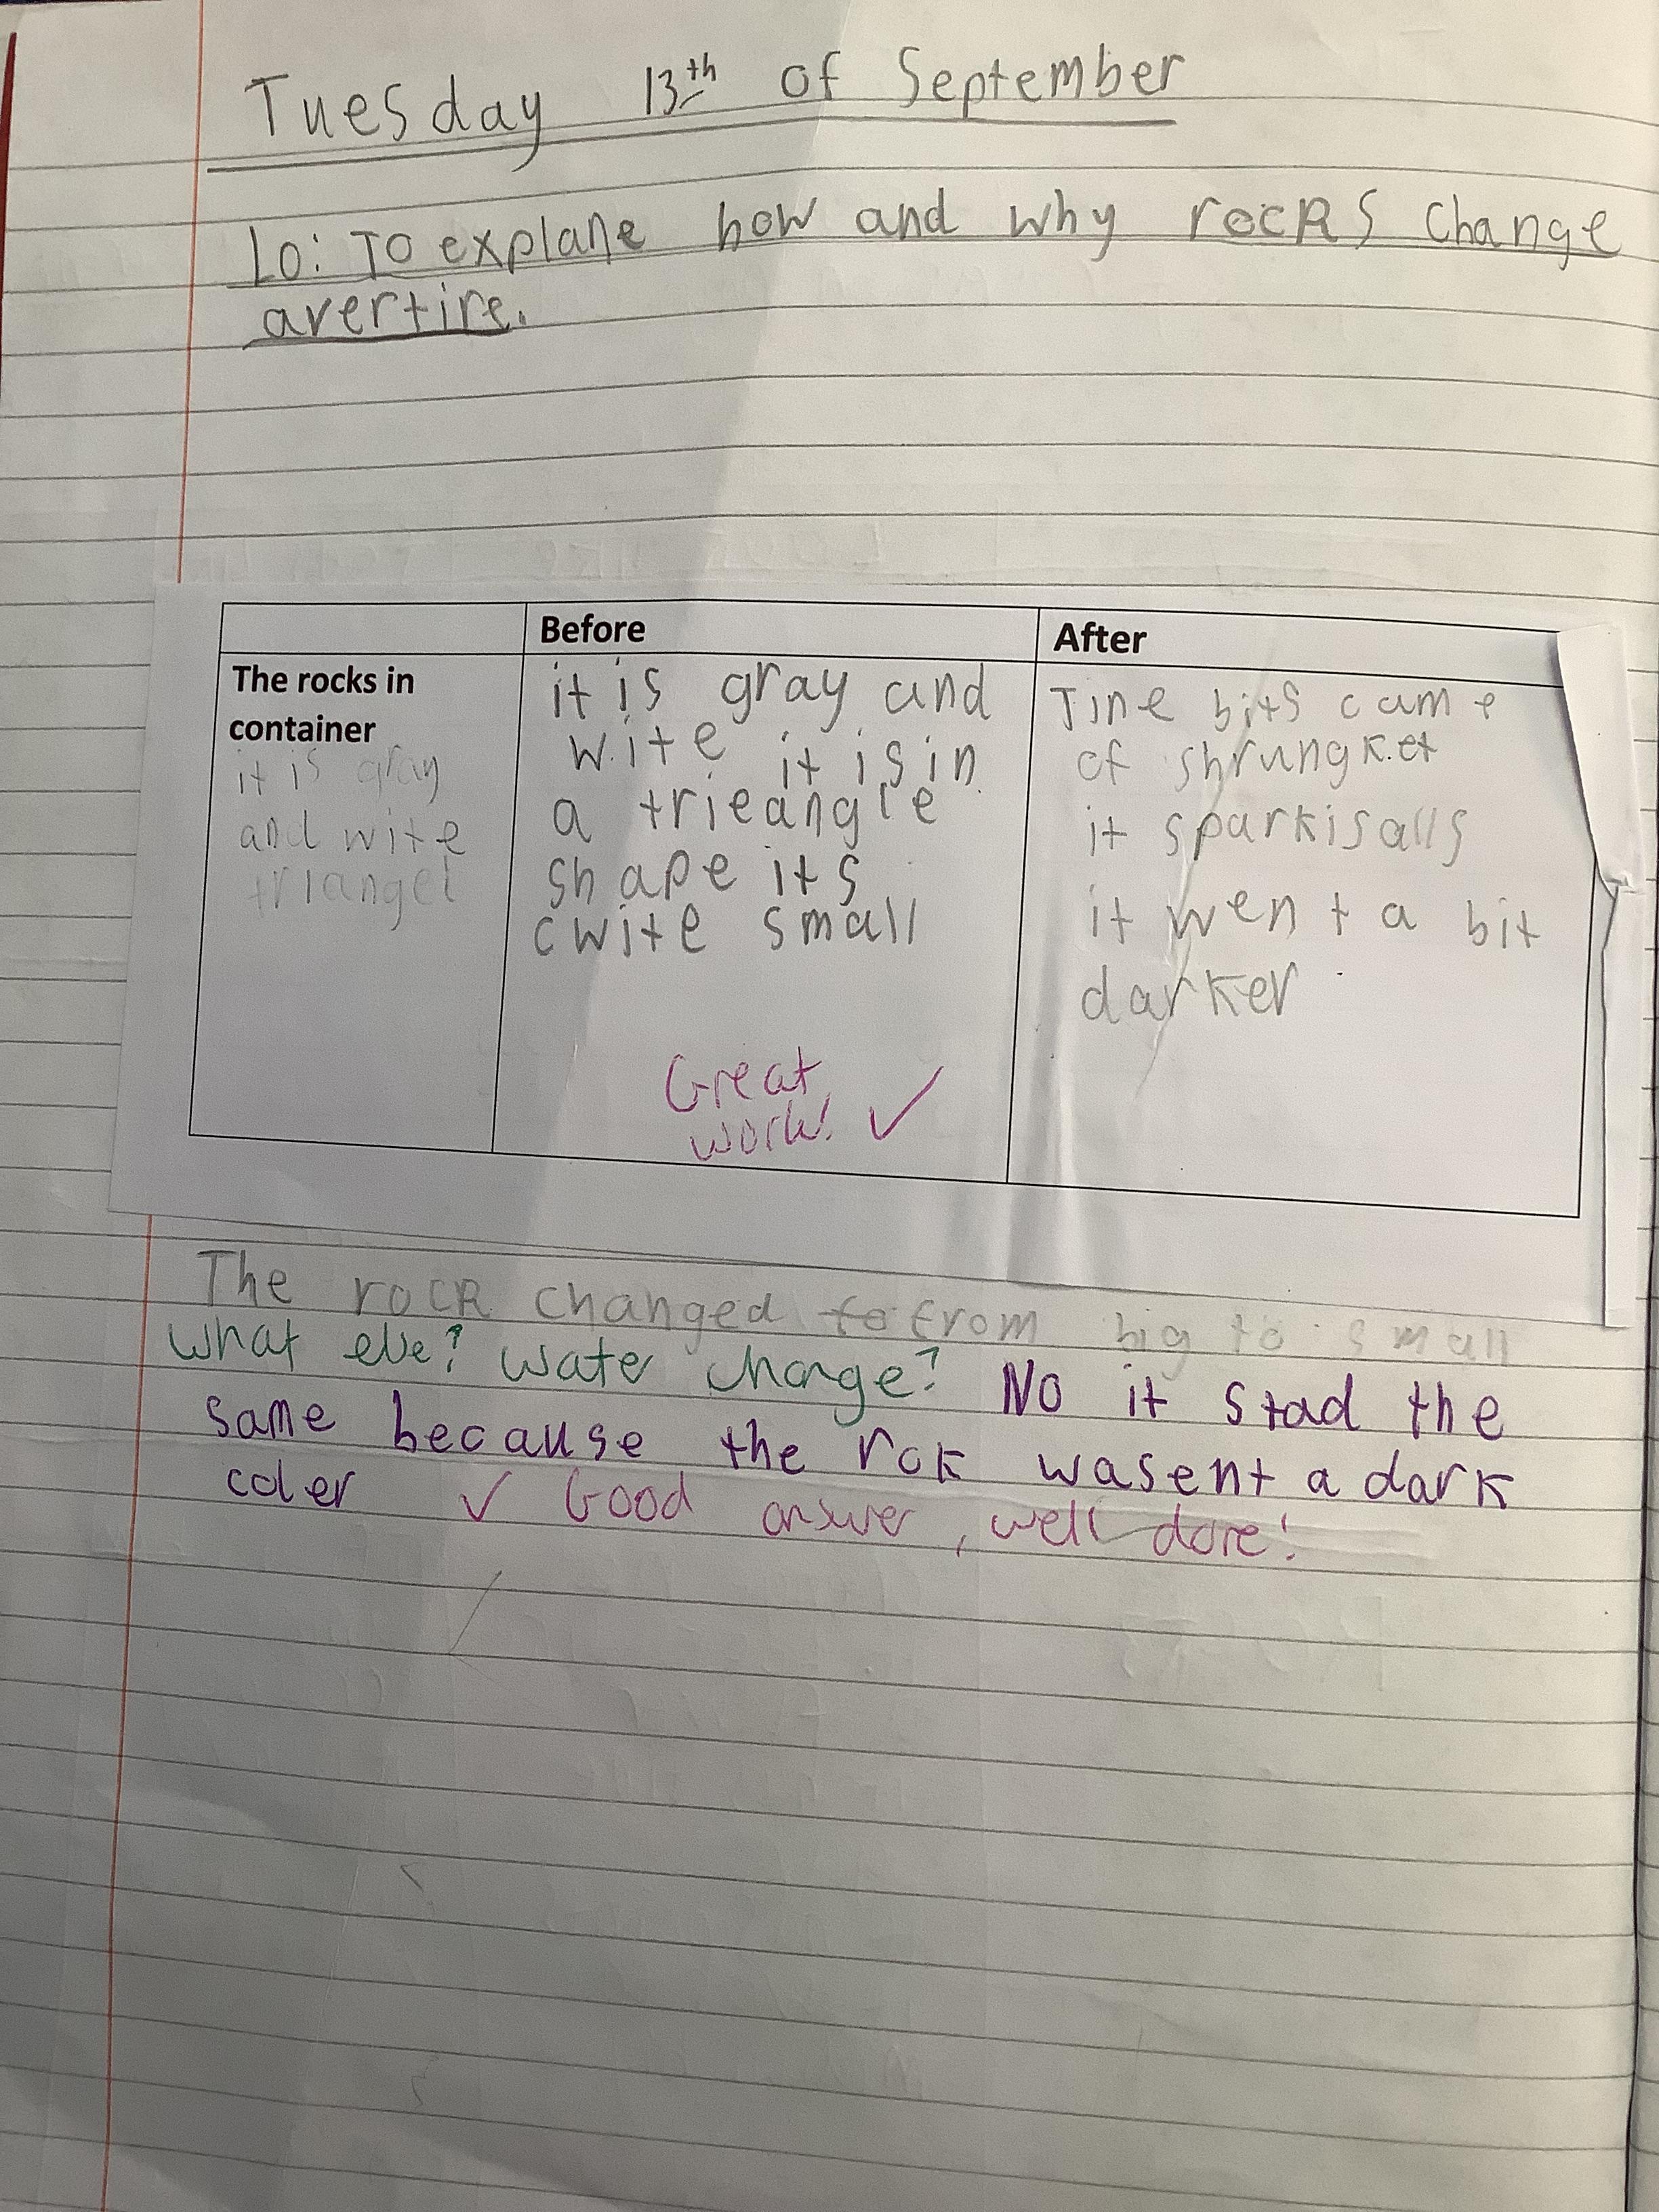 Tuesday 13th of September
Lo: To explane how and why rocks change
avertire.
Before
After
The rocks in
container
it is gray
and wite
triangel
it is gray and
wite it is in
a trieangle
shape its
cwite small
Great
work! ✓
Tine bits came
of shrungket
it sparkisalls
it went a bit
darker
The rock changed to from big to small
What else? Water change? No it stad the
same because the rok wasent a dark
coler ✓ Good answer, well done!